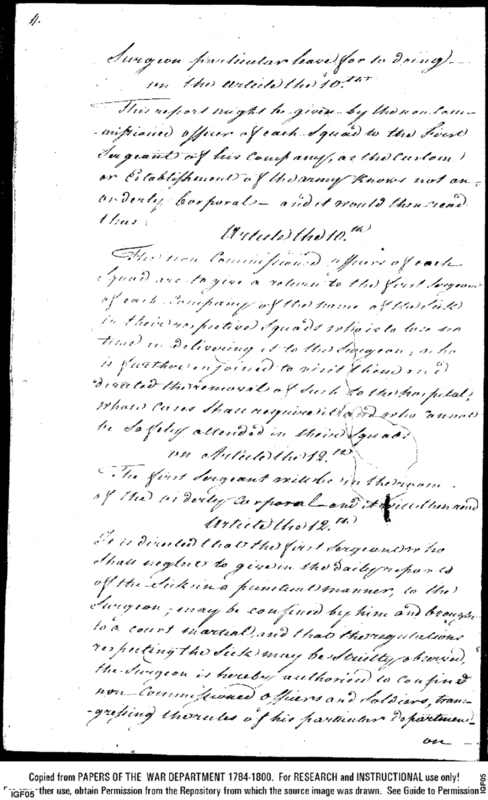 4.
Surgeon particular leave for so doing —
on the article the 10.th
This report might be given by the non Com-
-missioned officer of each Squad to the First
Sergeant of his Company, as the Custom
or Establishment of the army knows not an
orderly Corporal — and it would then read
thus
Article the 10.th
The non Commissioned officers of each
Squad are to give a return to the first Sergeant
of each Company of the name of the Sick
in their respective Squads who is to lose no
time in delivering it to the Surgeon, who
is further enjoined to visit them and
directed the removal of such to the hospital,
whose cases shall require it and who cannot
be safely attended in their Squad.
on Article the 12.th
The first Sergeant will be in the room
of the orderly Corporal — and it will then read
Article the 12.th
It is directed that the first Sergeants who
shall neglect to give in the daily reports
of the Sick in a punctual manner, to the
Surgeon, may be confined by him and brought
to a court martial, and that the regulations
respecting the Sick may be Strictly observed,
the Surgeon is hereby authorised to confine
non Commissioned officers and Soldiers, tran-
-gressing the rules of his particular department
on —
Copied from PAPERS OF THE WAR DEPARTMENT 1784-1800. For RESEARCH and INSTRUCTIONAL use only!
IGF05 ther use, obtain Permission from the Repository from which the source image was drawn. See Guide to Permission
IGF05